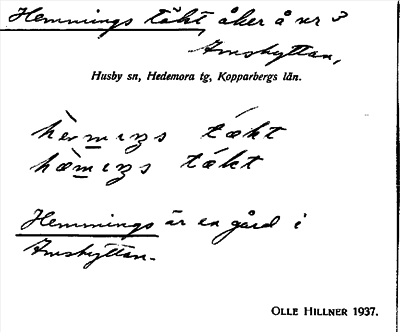 Hemmings täkt, åker å nr 3
Amshyttan,
Husby sn, Hedemora tg, Kopparbergs län.
tækt
tækt
Hemmings är en gård i
Amshyttan.
OLLE HILLNER 1937.